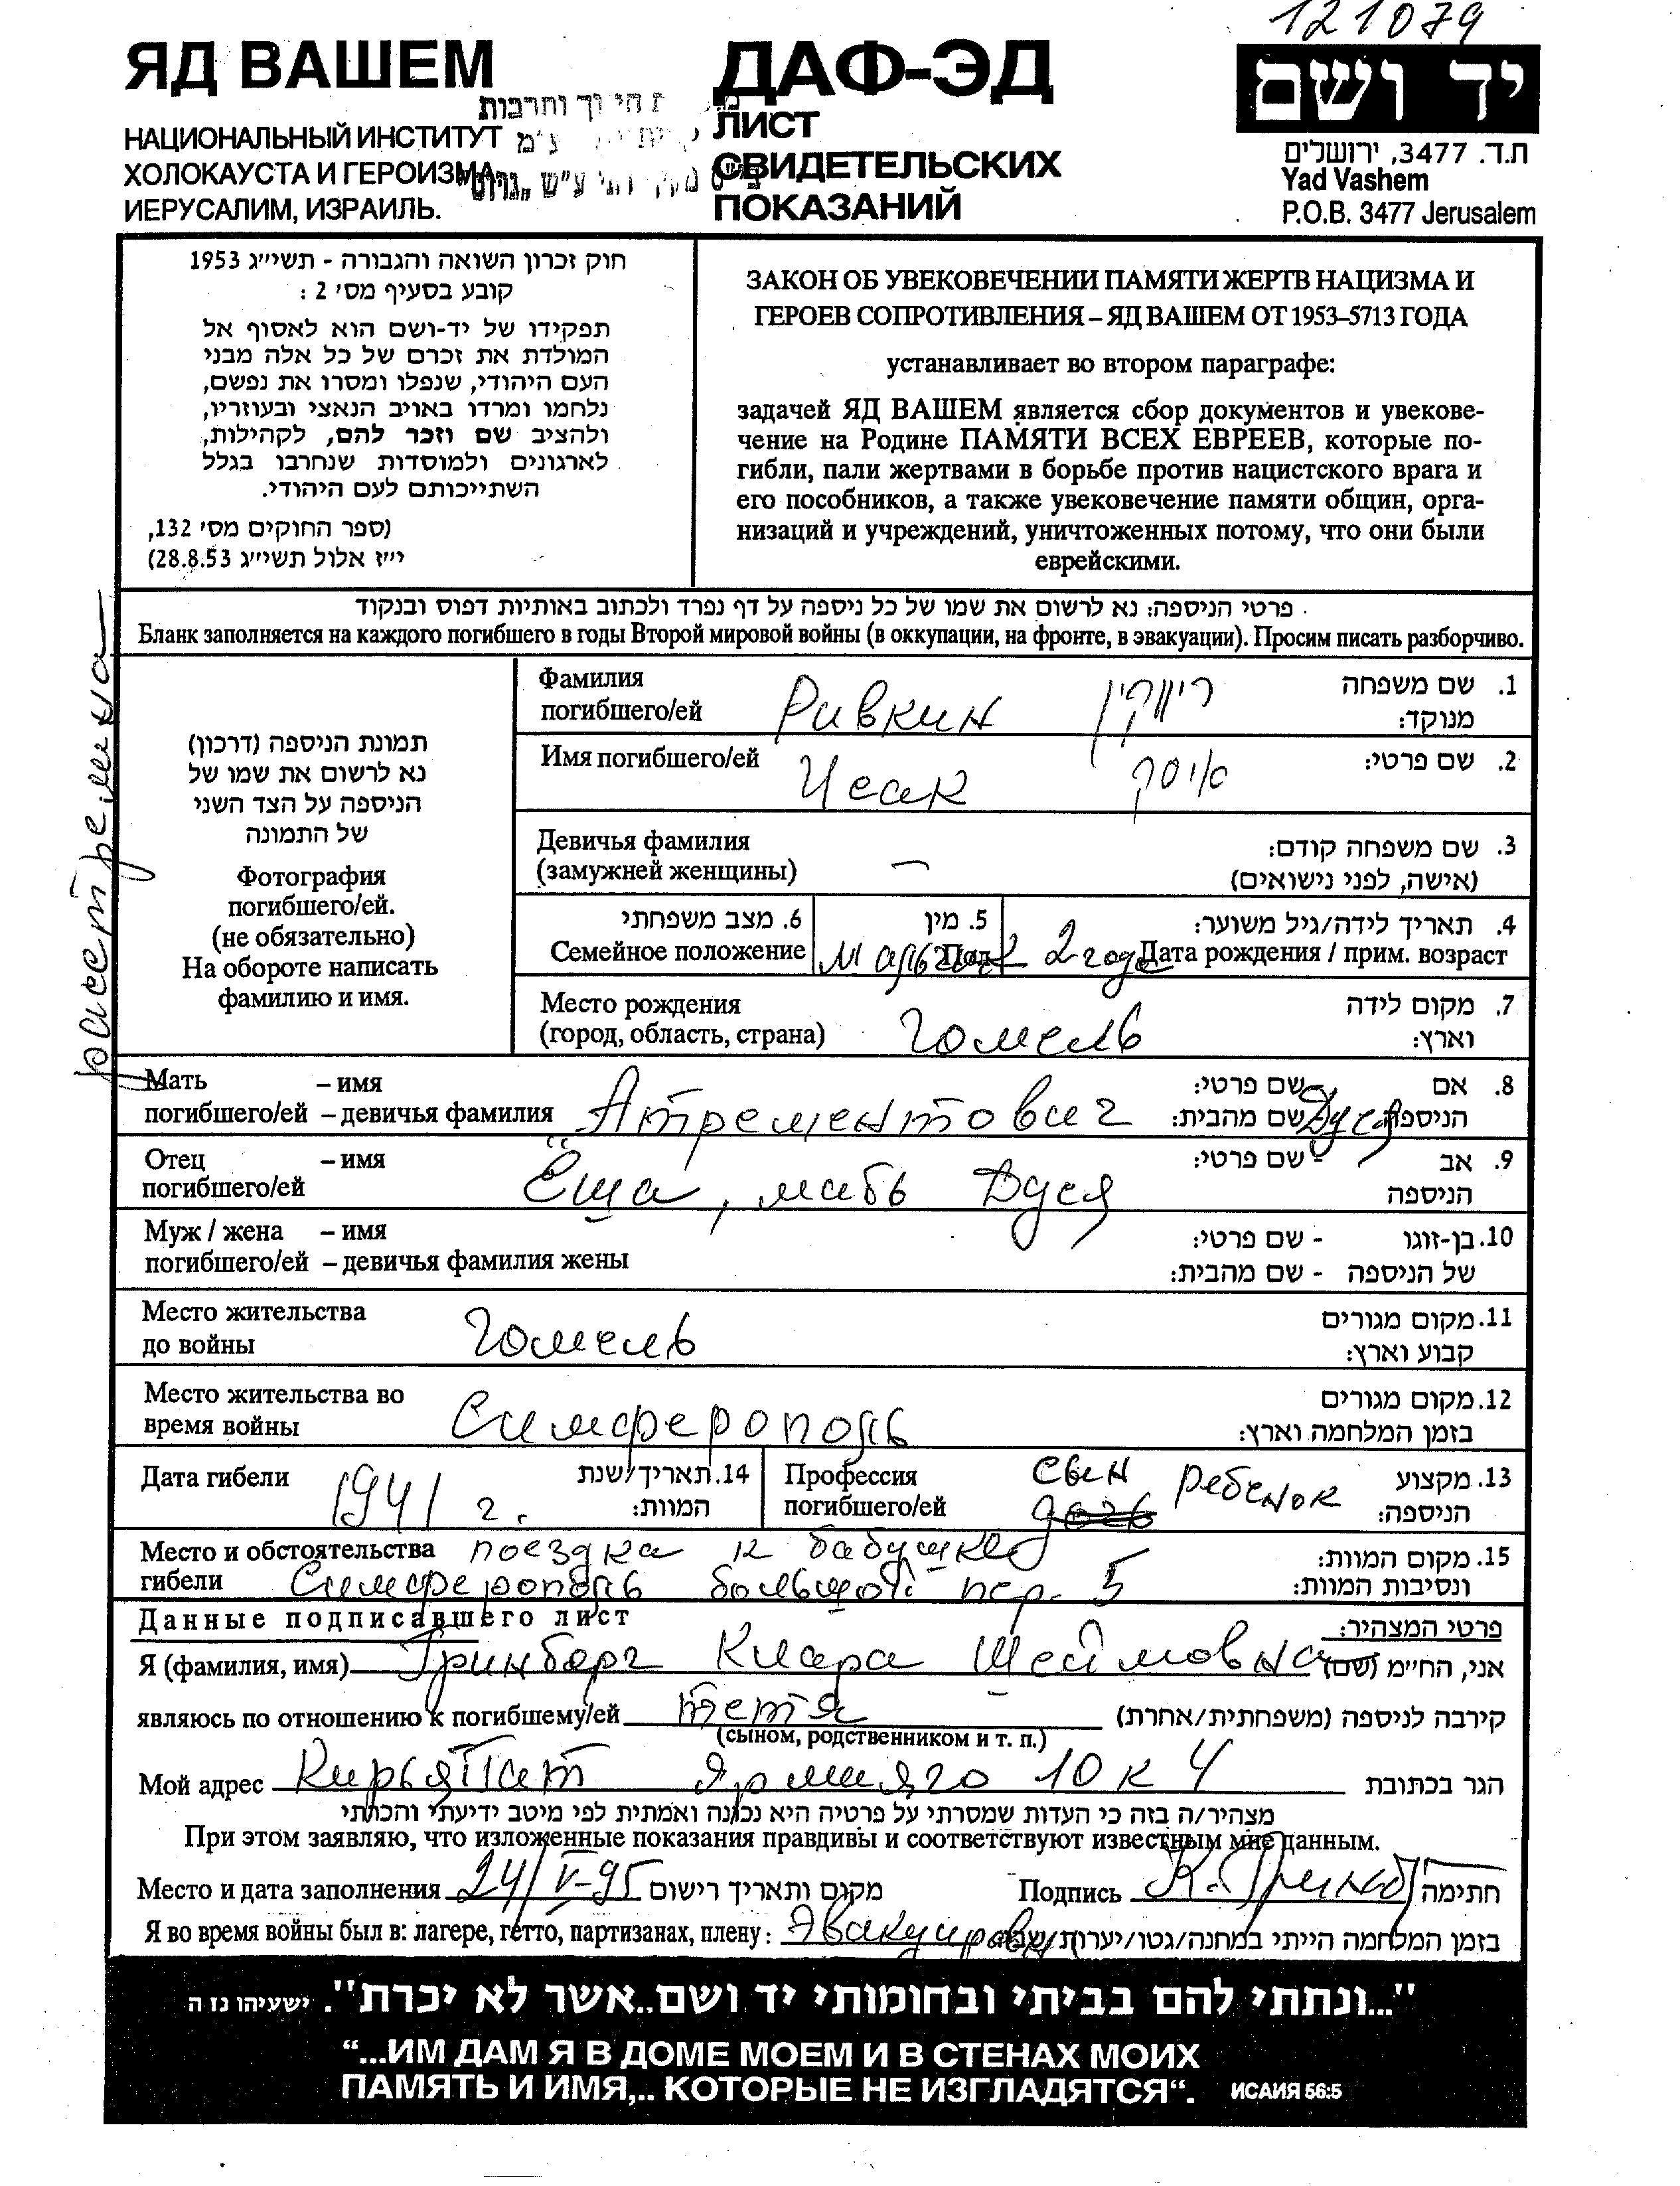 121079
ЯД ВАШЕМ
НАЦИОНАЛЬНЫЙ ИНСТИТУТ
ХОЛОКАУСТА И ГЕРОИЗМА
ИЕРУСАЛИМ, ИЗРАИЛЬ.
ДАФ-ЭД
ЛИСТ
СВИДЕТЕЛЬСКИХ
ПОКАЗАНИЙ
יד ושם
ת.ד. 3477, ירושלים
Yad Vashem
P.O.B. 3477 Jerusalem
חוק זכרון השואה והגבורה - תשי״ג 1953
קובע בסעיף מס׳ 2 :
תפקידו של יד-ושם הוא לאסוף אל
המולדת את זכרם של כל אלה מבני
העם היהודי, שנפלו ומסרו את נפשם,
נלחמו ומרדו באויב הנאצי ובעוזריו,
ולהציב שם וזכר להם, לקהילות,
לארגונים ולמוסדות שנחרבו בגלל
השתייכותם לעם היהודי.
(ספר החוקים מס׳ 132,
י״ז אלול תשי״ג 28.8.53)
ЗАКОН ОБ УВЕКОВЕЧЕНИИ ПАМЯТИ ЖЕРТВ НАЦИЗМА И
ГЕРОЕВ СОПРОТИВЛЕНИЯ – ЯД ВАШЕМ ОТ 1953–5713 ГОДА
устанавливает во втором параграфе:
задачей ЯД ВАШЕМ является сбор документов и увекове-
чение на Родине ПАМЯТИ ВСЕХ ЕВРЕЕВ, которые по-
гибли, пали жертвами в борьбе против нацистского врага и
его пособников, а также увековечение памяти общин, орга-
низаций и учреждений, уничтоженных потому, что они были
еврейскими.
פרטי הניספה: נא לרשום את שמו של כל ניספה על דף נפרד ולכתוב באותיות דפוס ובנקוד
Бланк заполняется на каждого погибшего в годы Второй мировой войны (в оккупации, на фронте, в эвакуации). Просим писать разборчиво.
תמונת הניספה (דרכון)
נא לרשום את שמו של
הניספה על הצד השני
של התמונה
Фотография
погибшего/ей.
(не обязательно)
На обороте написать
фамилию и имя.
Фамилия
погибшего/ей Ривкин ריווקין
1. שם משפחה
מנוקד:
Имя погибшего/ей Исак איסק 2. שם פרטי:
Девичья фамилия
(замужней женщины) —
3. שם משפחה קודם:
(אישה, לפני נישואים)
6. מצב משפחתי
Семейное положение
5. מין
Пол мальчик
4. תאריך לידה/גיל משוער:
2 года Дата рождения / прим. возраст
Место рождения
(город, область, страна) Гомель
7. מקום לידה
וארץ:
Мать – имя שם פרטי: 8. אם
погибшего/ей – девичья фамилия Атрементович שם מהבית: Дуся הניספה
Отец – имя - שם פרטי: 9. אב
погибшего/ей Ёша, мать Дуся הניספה
Муж / жена – имя - שם פרטי: 10. בן-זוגו
погибшего/ей – девичья фамилия жены - שם מהבית: של הניספה
Место жительства
до войны Гомель
11. מקום מגורים
קבוע וארץ:
Место жительства во
время войны Симферополь
12. מקום מגורים
בזמן המלחמה וארץ:
Дата гибели 1941 г.
14. תאריך/שנת
המוות:
Профессия
погибшего/ей сын дочь ребенок
13. מקצוע
הניספה:
Место и обстоятельства поездка к бабушке 15. מקום המוות:
гибели Симферополь большой пер. 5 ונסיבות המוות:
Данные подписавшего лист פרטי המצהיר:
Я (фамилия, имя) Гринберг Клара Шеймовна אני, הח״מ (שם)
являюсь по отношению к погибшему/ей тетя קירבה לניספה (משפחתית/אחרת)
(сыном, родственником и т. п.)
Мой адрес Кирья Гат Ярмияго 10 к 4 הגר בכתובת
מצהיר/ה בזה כי העדות שמסרתי על פרטיה היא נכונה ואמתית לפי מיטב ידיעתי והכרתי
При этом заявляю, что изложенные показания правдивы и соответствуют известным мне данным.
Место и дата заполнения 24/V-95 מקום ותאריך רישום Подпись К. Гринб חתימה
Я во время войны был в: лагере, гетто, партизанах, плену: Эвакуировали בזמן המלחמה הייתי במחנה/גטו/יערות/שבי
расстреляно
"...ונתתי להם בביתי ובחומותי יד ושם..אשר לא יכרת". ישעיהו נז ה
“...ИМ ДАМ Я В ДОМЕ МОЕМ И В СТЕНАХ МОИХ
ПАМЯТЬ И ИМЯ,.. КОТОРЫЕ НЕ ИЗГЛАДЯТСЯ“. ИСАИЯ 56:5